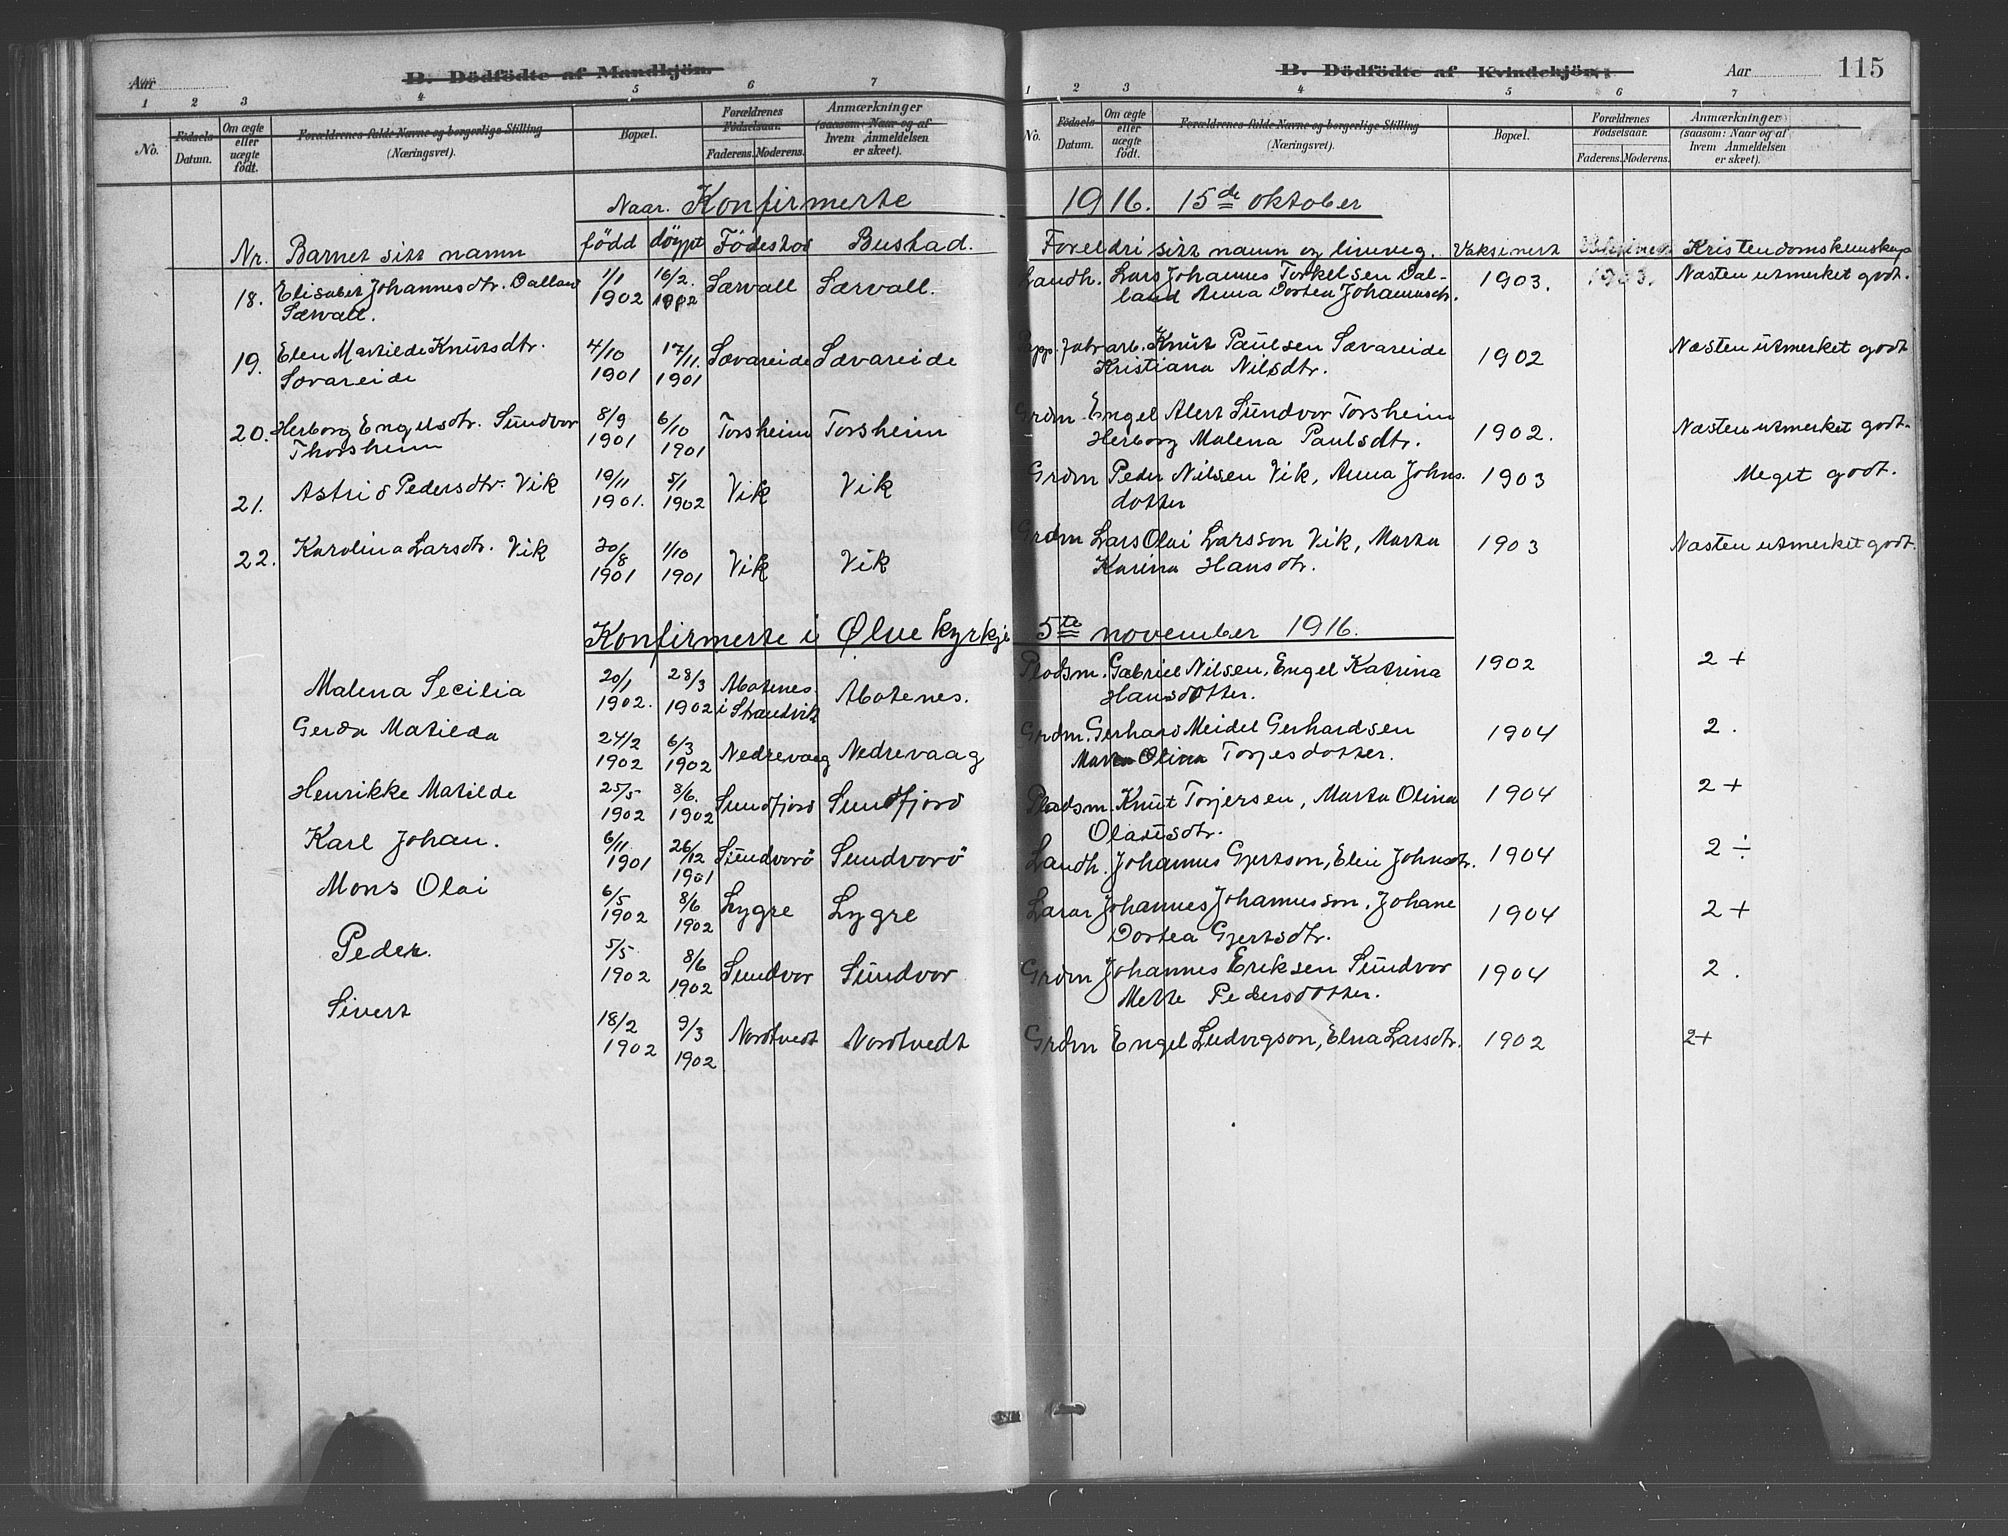 Aar
B. Dödfödte af Mandkjön.
1 2 3 4 5 6 7
No.
Födsels Datum.
Om ægte eller uægte födt.
Forældrenes fulde Navne og borgerlige Stilling (Næringsvei).
Bopæl.
Forældrenes Födselsaar.
Faderens. Moderens.
Anmærkninger (saasom: Naar og af hvem Anmeldelsen er skeet).
B. Dödfödte af Kvindekjön.
Aar
115
1 2 3 4 5 6 7
No.
Födsels Datum.
Om ægte eller uægte födt.
Forældrenes fulde Navne og borgerlige Stilling (Næringsvei).
Bopæl.
Forældrenes Födselsaar.
Faderens. Moderens.
Anmærkninger (saasom: Naar og af hvem Anmeldelsen er skeet).
Naar. Konfirmerte 1916. 15de oktober
Nr. Barnet sitt namn född döypt Födestad Bustad. Foreldri sitt namn og liveveg. Vaksinert Kristendomskunskap
18. Elisabet Johannesdtr. Dalland 1/1 16/2 Sævall Sævall. Landh. Lars Johannes Torkelsen Dal- 1903. 1903. Næsten utmerket godt.
Sævall. 1902 1902 land Anna Dortea Johannesdtr.
19. Elen Matilde Knutsdtr. 4/10 17/11. Sævareide Sævareide arb. Knut Paulsen Sævareide 1902 Næsten utmerket godt
Sævareide 1901 1901 Kristiana Nilsdtr.
20. Herborg Engelsdtr. Sundvor 8/9 6/10 Torsheim Torsheim Grdm Engel Alert Sundvor Torsheim 1902. Næsten utmerket godt.
Thorsheim 1901 1901 Herborg Malena Paulsdtr.
21. Astrid Pedersdtr. Vik 19/11 5/1 Vik Vik Grdm Peder Nilsen Vik, Anna Johns 1903 Meget godt.
1901. 1902 dotter
22. Karolina Larsdtr. Vik 20/8 1/10 Vik Vik Grdm Lars Olai Larsson Vik, Marta 1903 Næsten utmerket godt.
1901 1901 Karina Hansdtr.
Konfirmerte i Ølve kyrkje 5te november 1916.
Malena Secilia 20/1 28/3 Abotenes Abotenes. Pladsm. Gabriel Nilsen, Engel Katrina 1902 2 +
1902. 1902 i Strandvik Hansdotter.
Gerda Matilda 24/2 6/3 Nedrevaag Nedrevaag Grdm. Gerhard Meidel Gerhardsen 1904 2.
1902 1902 Marta Olina Torjesdotter.
Henrikke Matilde 25/5 8/6. Sundfjord Sundfjord Pladsm. Knut Torjersen, Marta Olina 1904 2 +
1902 1902 Olausdtr.
Karl Johan. 6/11 26/12 Sundvorö Sundvorö Landh. Johannes Gjertson, Elin Johnsdtr. 1904 2 ÷
1901 1901
Mons Olai 6/5 8/6 Lygre Lygre Lærar Johannes Johannesson, Johane 1904 2 +
1902 1902 Dortea Gjertsdtr.
Peder. 5/5 8/6 Sundvor Sundvor Grdm Johannes Eriksen Sundvor 1904 2.
1902 1902 Mette Pedersdotter.
Sivert 18/2 9/3 Nordtvedt Nordtvedt Grdm Engel Ludvigson, Elna Larsdtr. 1902 2+
1902 1902